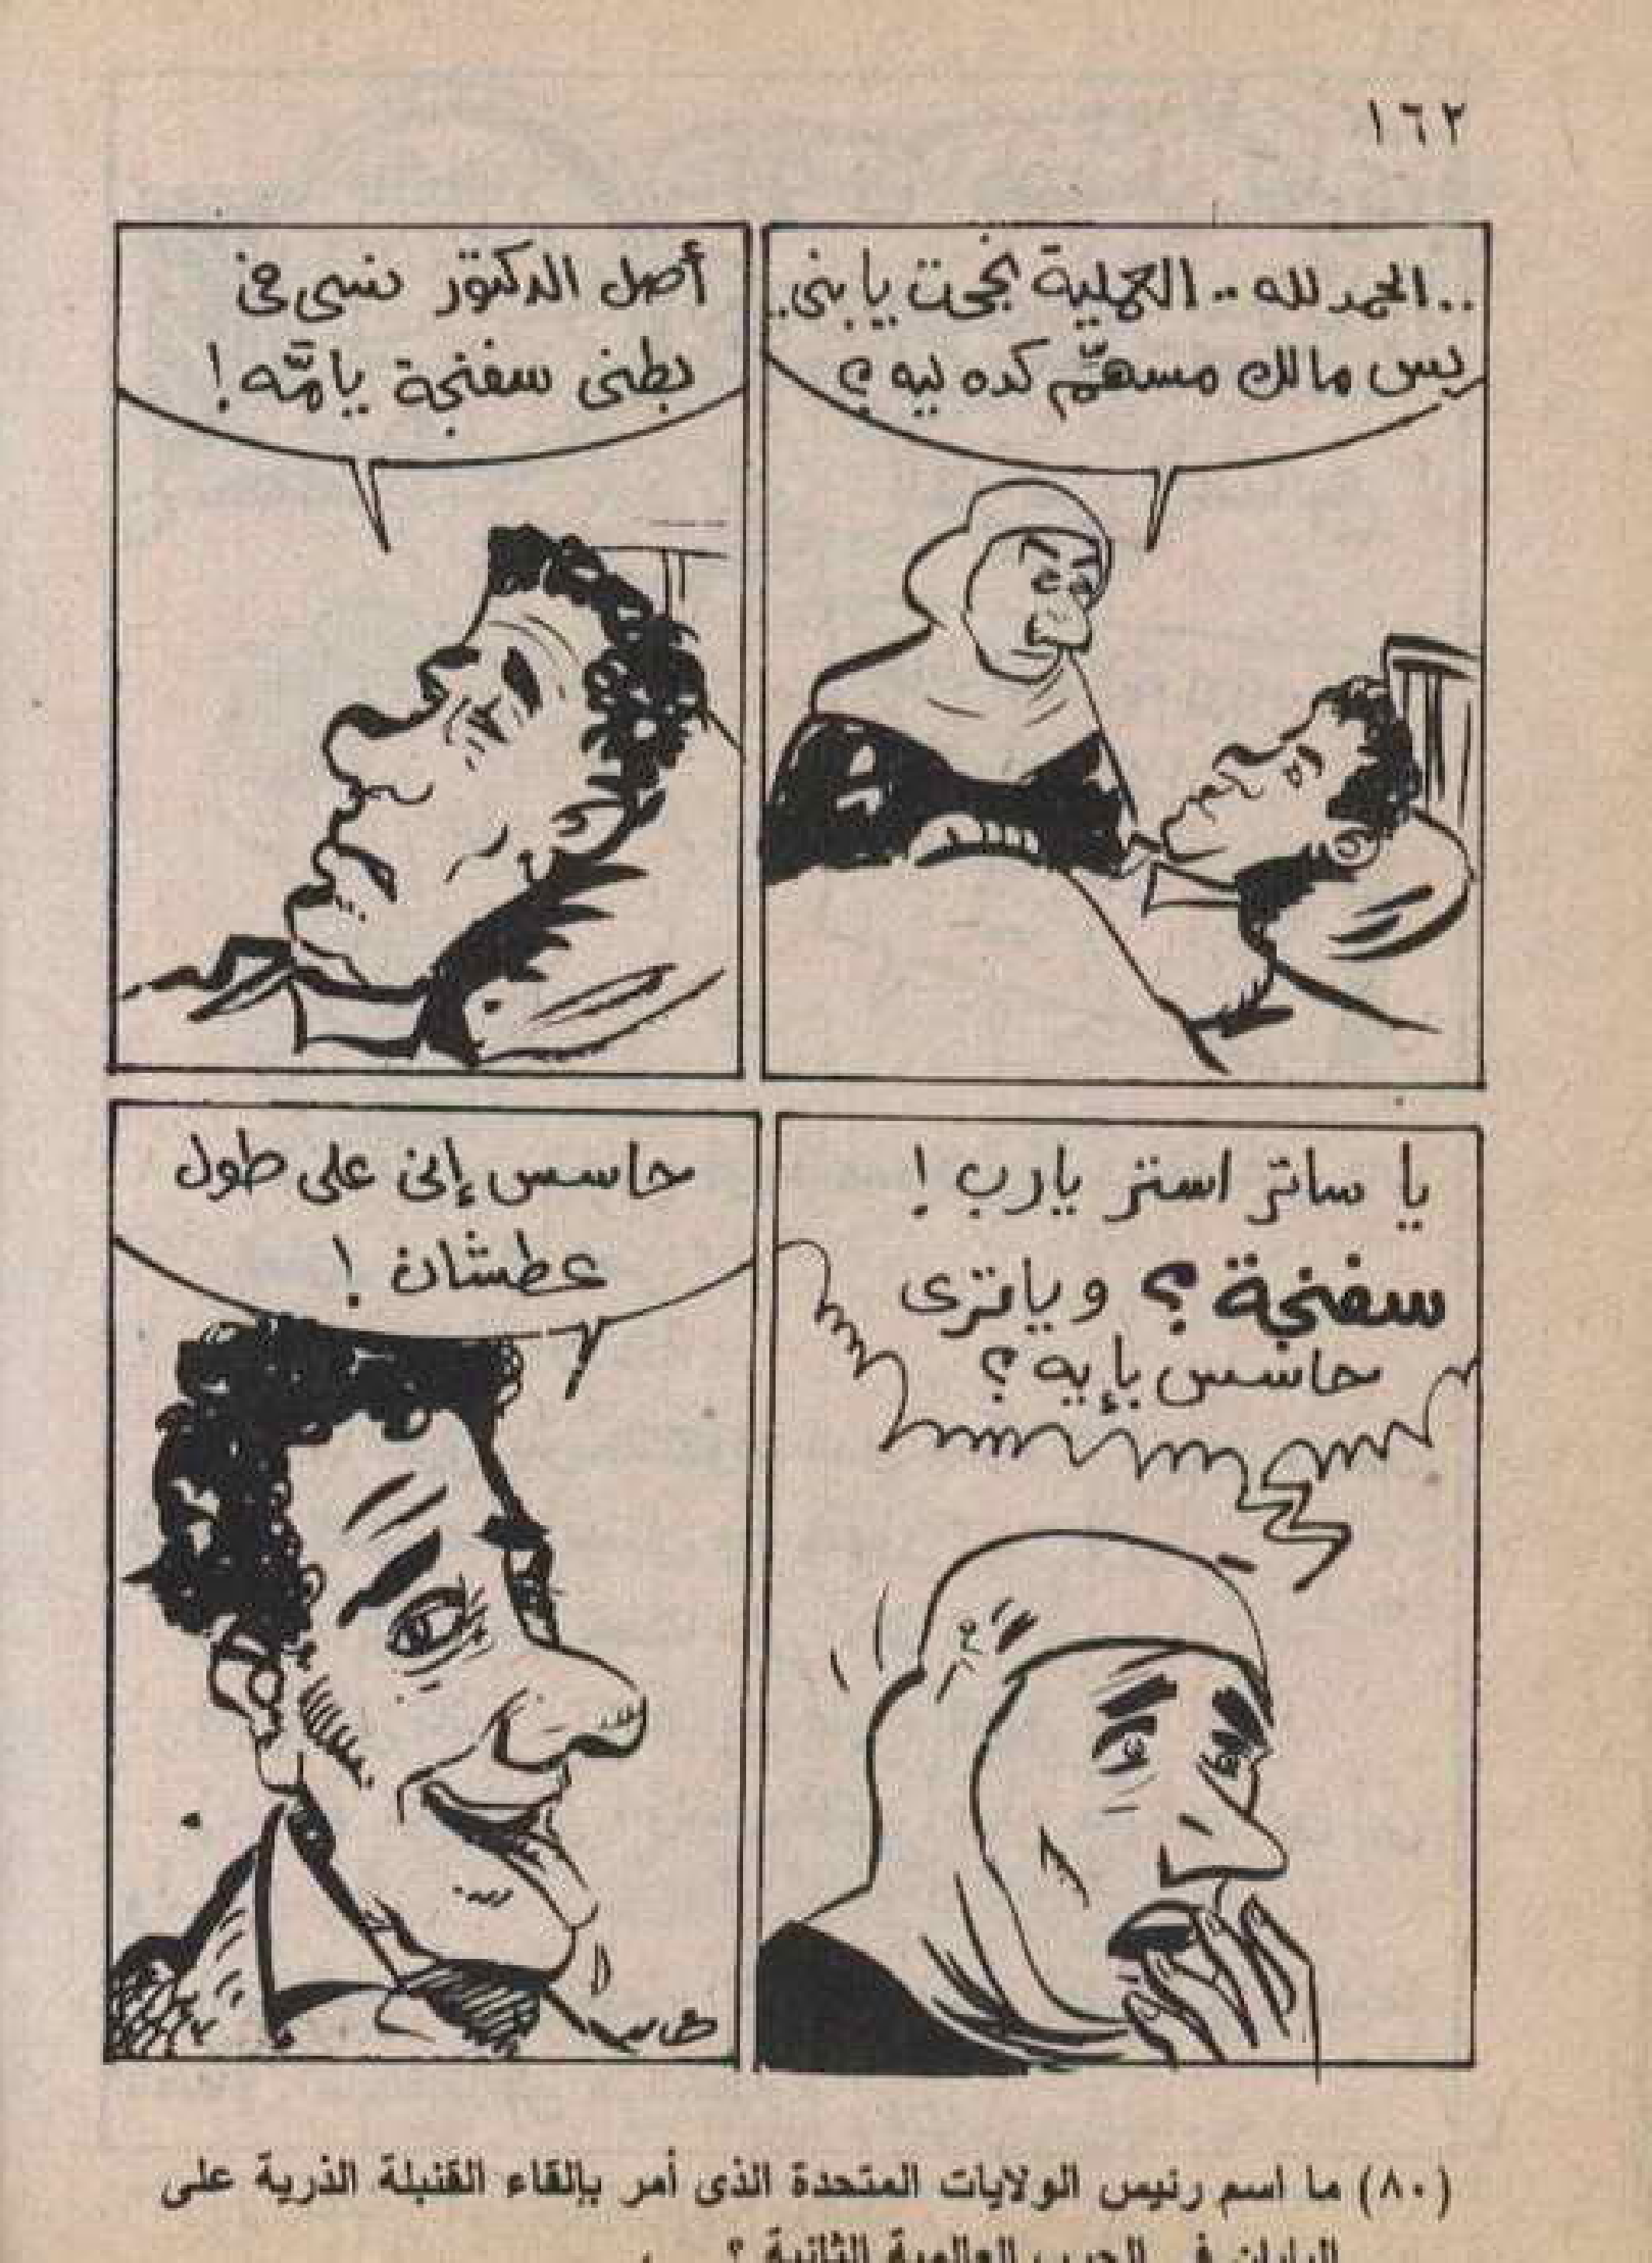 ١٦٢
..الحمد لله .. العملية نجحت يا بنى..
بس مالك مسهّم كده ليه ؟
أصل الدكتور نسى فى
بطنى سفنجة يامَّه !
يا ساتر استر يارب !
سفنجة ؟ وياترى
حاسس بإيه ؟
حاسس إنى على طول
عطشان !
(٨٠) ما اسم رئيس الولايات المتحدة الذى أمر بإلقاء القنبلة الذرية على
اليابان فى الحرب العالمية الثانية ؟